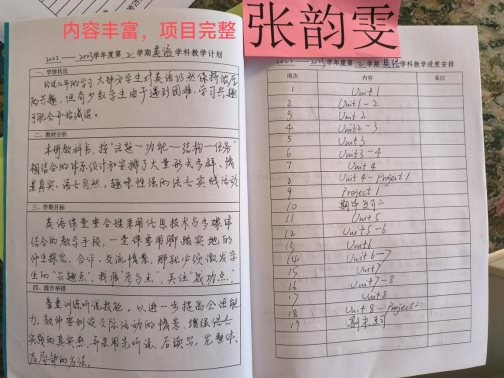 内容丰富，项目完整
张韵雯
2022—2023学年度第2学期英语学科教学计划
一、学情状况
经过几年的学习，大部分学生对英语仍然保持浓厚
的兴趣，但有少数学生由于遇到困难，学习兴趣
可能会开始减退。
二、教材分析
本册教科书，按“话题—功能—结构—任务”
相结合的体系设计和安排了大量形式多样、情
景真实、语言自然、趣味性强的语言实践活动
三、学期目标
英语课堂要合理采用信息技术与多媒体
结合的教学手段，一堂课要用脚踏实地的
师生探究、合作、交流情景，
生的“兴趣点”，我展 “ 点”，关注“成功点”
四、提升举措
着重训练听说技能，以进一步提高会话能
力，教师要创设交际活动的情景，增强语言
实践的真实感，并采用先听说，后读写，先整体，
后局部的方法。
2022—2023学年度第2学期英语学科教学进度安排
周次 内容 备注
1 Unit 1
2 Unit 1-2
3 Unit 2
4 Unit 2-3
5 Unit 3
6 Unit 3-4
7 Unit 4
8 Unit 4-Project 1
9 Project 1
10 期中复习
11 Unit 5
12 Unit 5-6
13 Unit 6
14 Unit 6-7
15 Unit 7
16 Unit 7-8
17 Unit 8
18 Unit 8-Project 2
19 期末复习